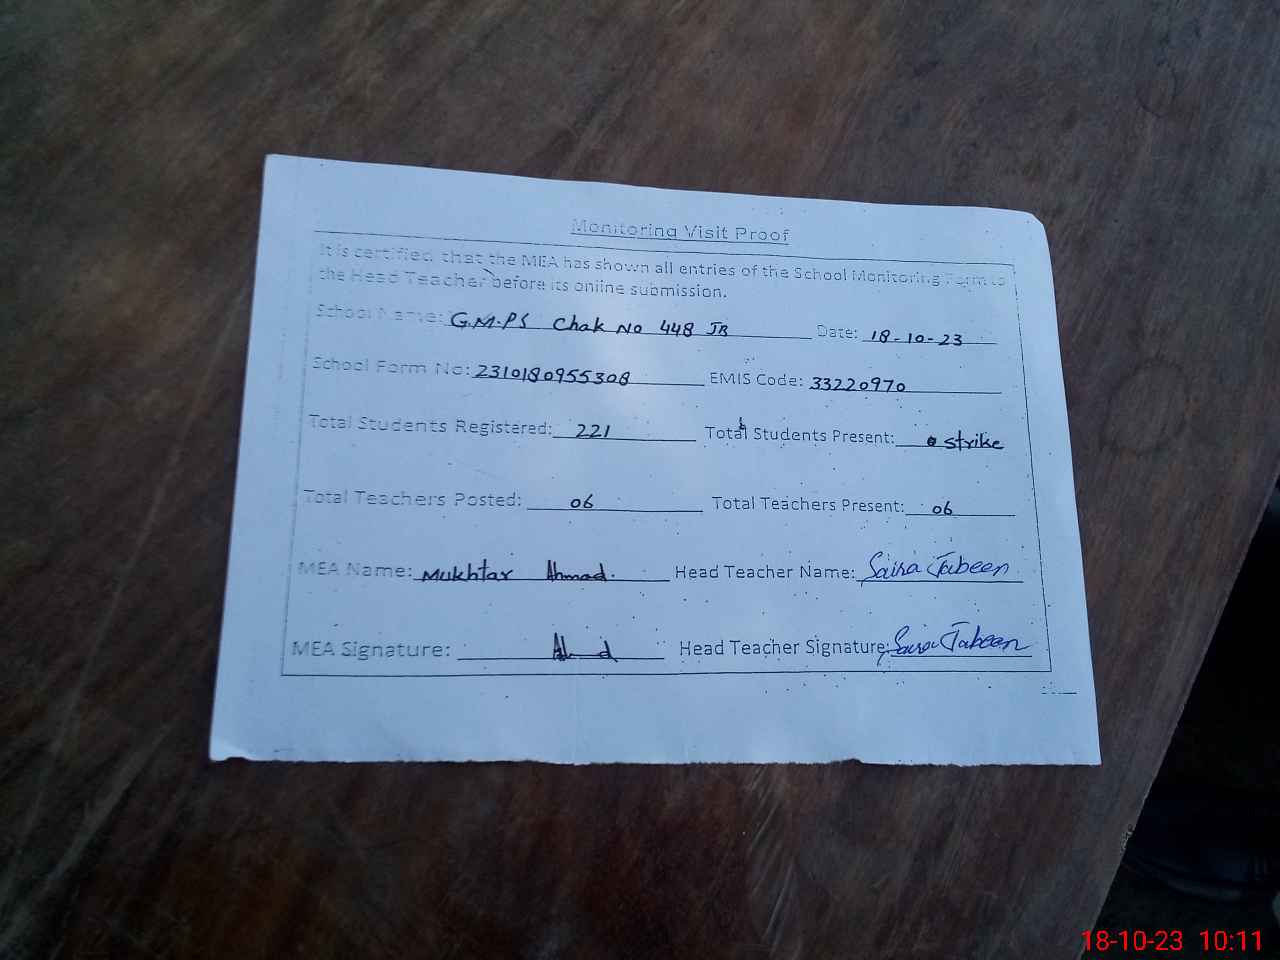 Monitoring Visit Proof
It is certified that the MEA has shown all entries of the School Monitoring Form to
the Head Teacher before its online submission.
School Name: G.M.P.S Chak No 448 JB Date: 18-10-23
School Form No: 2310180955308 EMIS Code: 33220970
Total Students Registered: 221 Total Students Present: 0 strike
Total Teachers Posted: 06 Total Teachers Present: 06
MEA Name: Mukhtar Ahmad. Head Teacher Name: Saira Jabeen
MEA Signature: Head Teacher Signature: Saira Jabeen
18-10-23 10:11